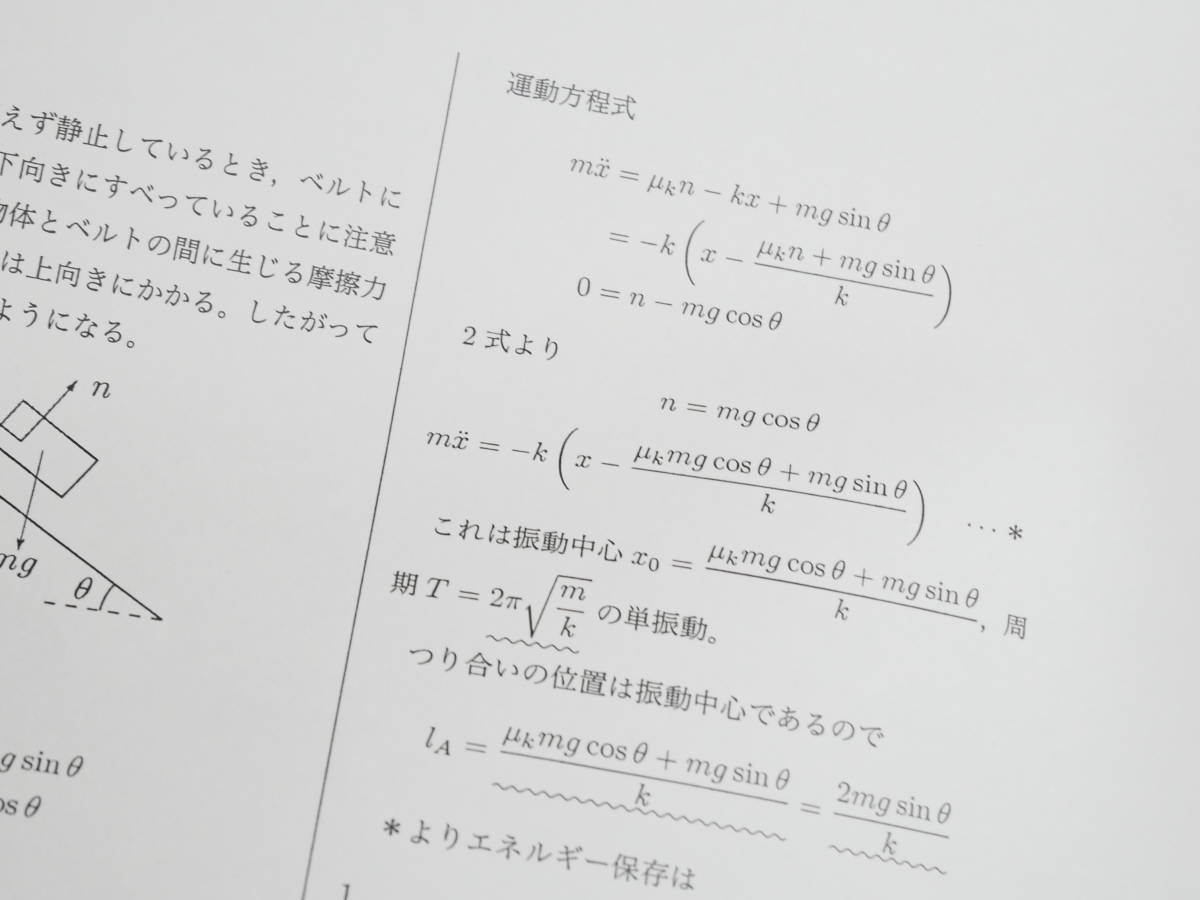 えず静止しているとき，ベルトに
下向きにすべっていることに注意
物体とベルトの間に生じる摩擦力
は上向きにかかる。したがって
ようになる。
n
mg
θ
g sin θ
os θ
運動方程式
mẍ = μₖn − kx + mg sin θ
= −k (x − (μₖn + mg sin θ)/k)
0 = n − mg cos θ
2 式より
n = mg cos θ
mẍ = −k (x − (μₖmg cos θ + mg sin θ)/k) ··· *
これは振動中心 x₀ = (μₖmg cos θ + mg sin θ)/k，周
期 T = 2π√(m/k) の単振動。
つり合いの位置は振動中心であるので
l_A = (μₖmg cos θ + mg sin θ)/k = 2mg sin θ/k
* よりエネルギー保存は
1